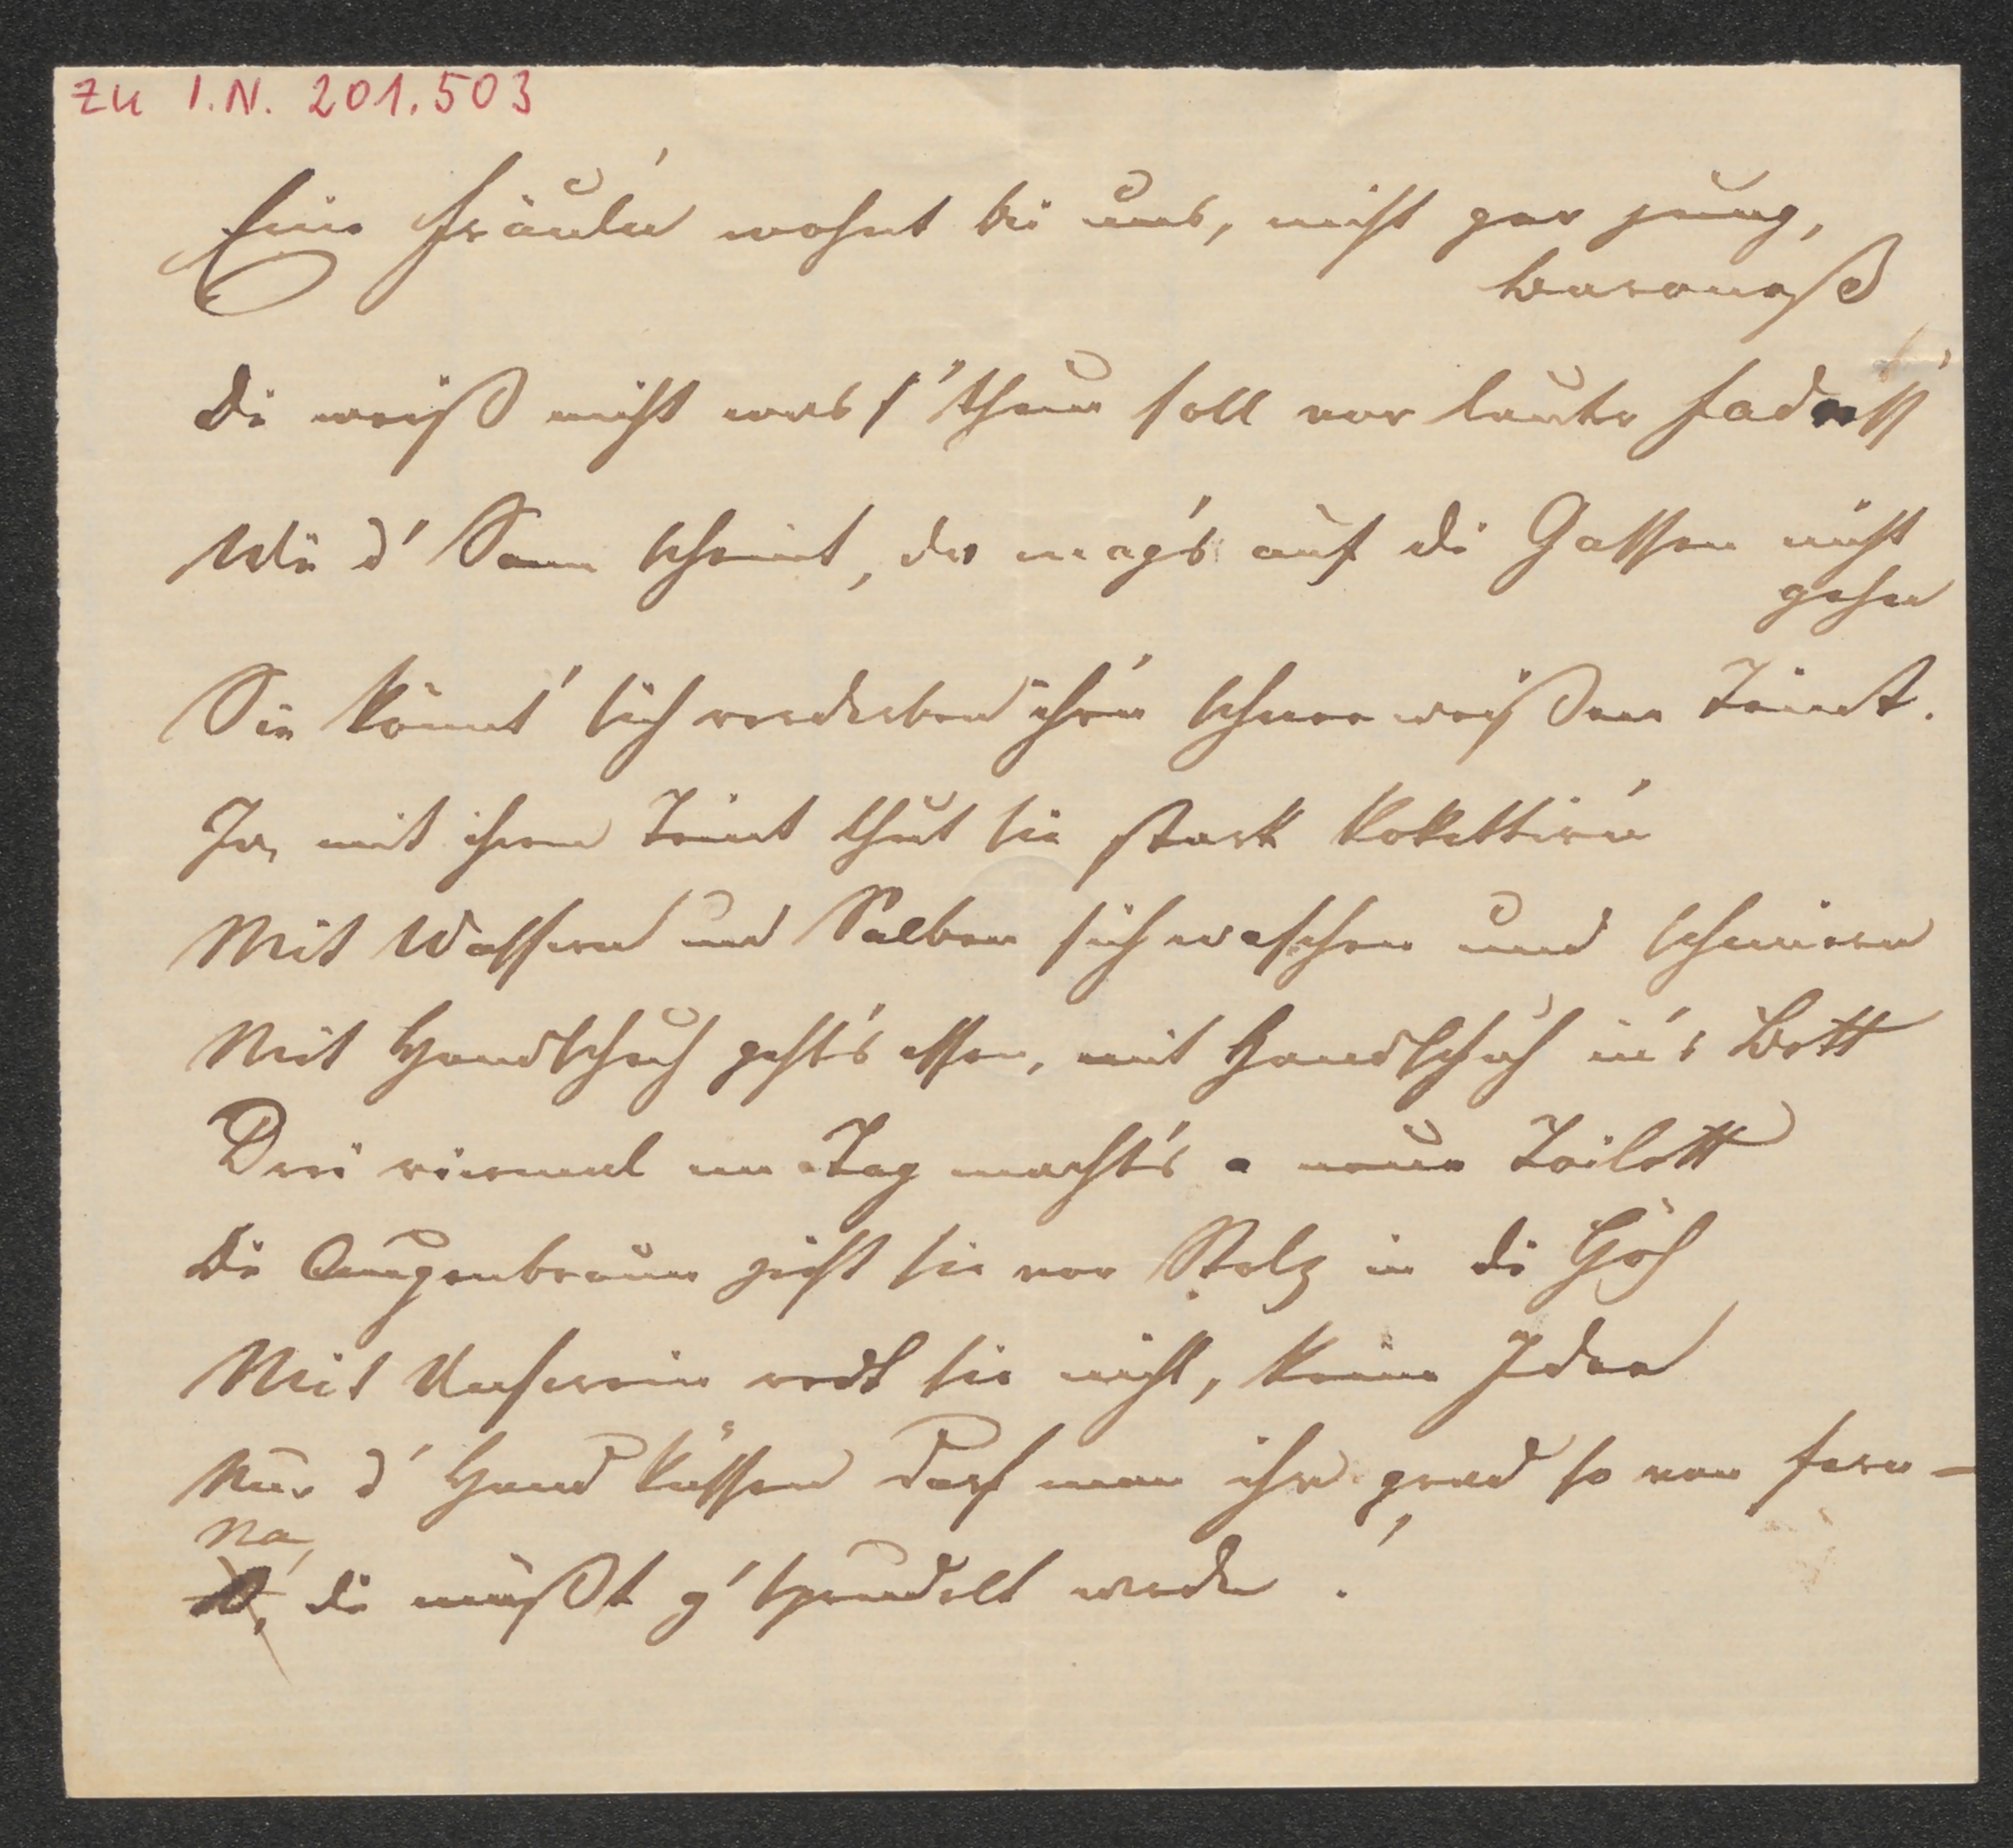 zu I.N. 201.503
Eine Fräul'n wohnt bei uns, nicht gar jung,
Baroneß
Die weiß nicht was s' thun soll vor lauter Fadeß'
Wie d' Sonn scheint, da mag's auf die Gassen nicht
gehen
Sie könnt' sich verderben ihr'n schneeweißen Teint.
Ja, mit ihren Teint thut sie stark kokettier'n
Mit Wassern und Salben sich waschen und schmieren
Mit Handschuh geht's essen, mit Handschuh in's Bett
Drei viermal im Tag macht's a neue Toilett
Die Augenbraun zieht sie vor Stolz in die Höh
Mit Unserein redt sie nicht, keine Idee
Nur d' Hand küssen darf man ihr grad so von fern –
Na,
die müßt g'sprudelt werden!